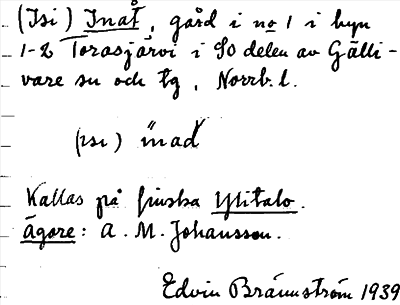 (Isi) Inåt, gård i no 1 i byn
1-2 Torasjärvi i SO delen av Gälli-
vare sn och tg, Norrb. l.
(ɪsɪ) inad
Kallas på finska Ylitalo.
Ägare: A. M. Johansson.
Edvin Brännström 1939